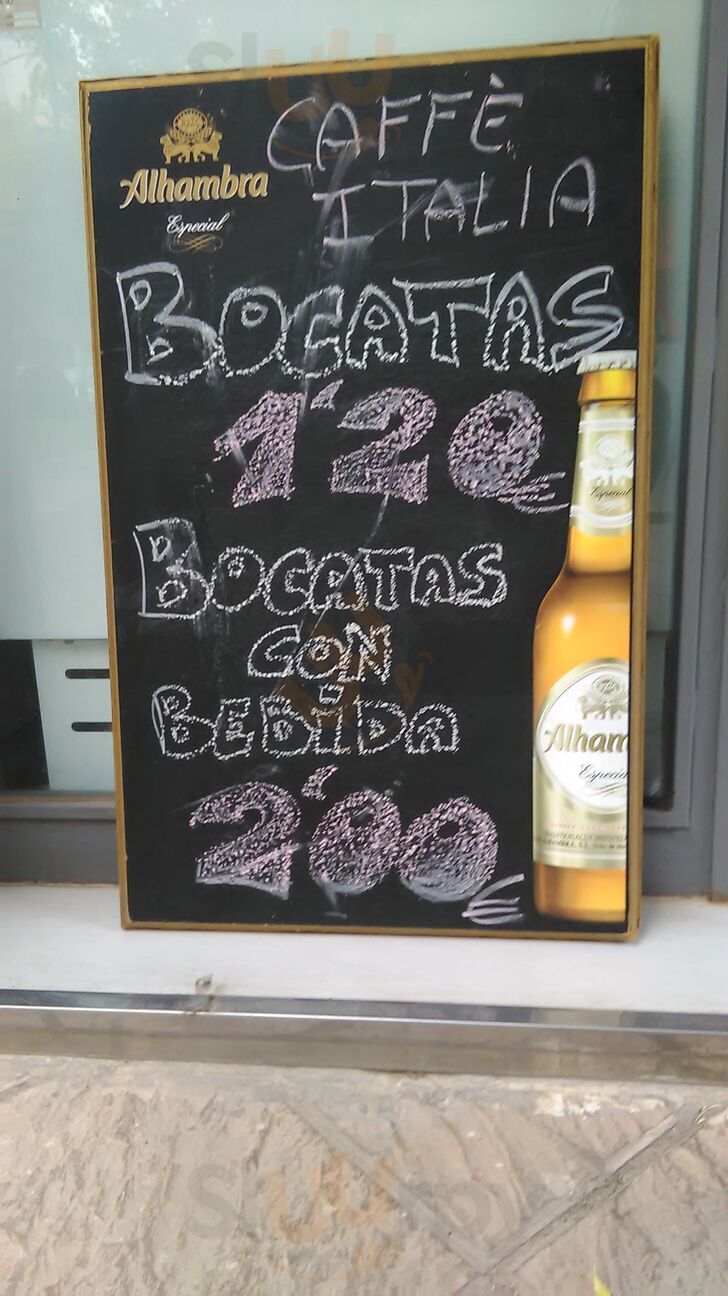 Alhambra
Especial
CAFFÈ
ITALIA
BOCATAS
1'20€
Especial
BOCATAS
CON
BEBIDA
2'00€
Alham
Especia